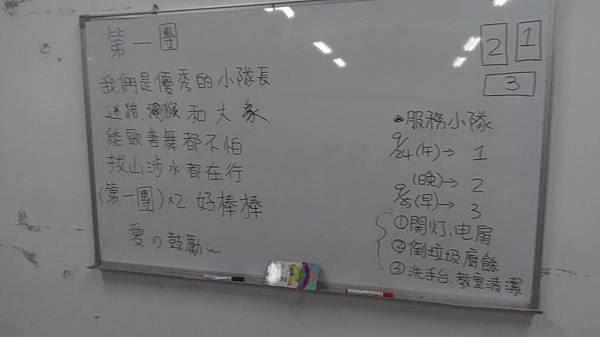 第一團
我們是優秀的小隊長
迷路、獼猴和大象
能歌善舞都不怕
拔山涉水都在行
(第一團)×2 好棒棒
愛の鼓勵~
2 1
3
服務小隊
9/24(午)→ 1
(晚)→ 2
9/25(早)→ 3
①関灯、电扇
②倒垃圾廚餘
③洗手台、教室清潔